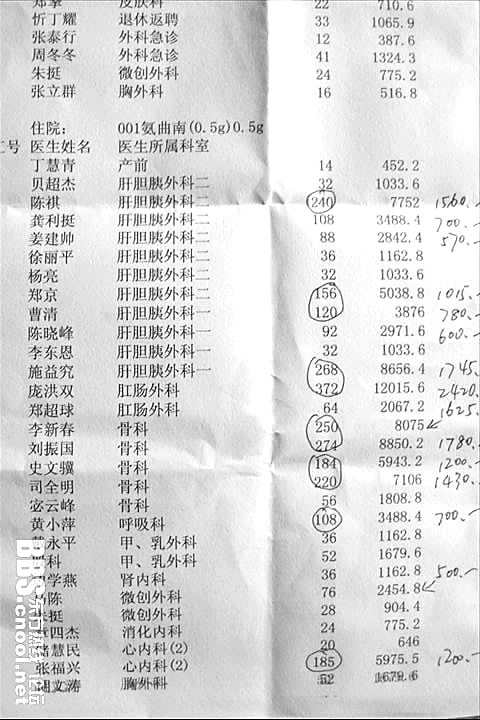 皮肤科 22 710.6
忻丁耀 退休返聘 33 1065.9
张泰行 外科急诊 12 387.6
周冬冬 外科急诊 41 1324.3
朱挺 微创外科 24 775.2
张立群 胸外科 16 516.8
住院: 001氨曲南(0.5g)0.5g
号 医生姓名 医生所属科室
丁慧青 产前 14 452.2
贝超杰 肝胆胰外科二 32 1033.6
陈祺 肝胆胰外科二 240 7752 1560.-
龚利挺 肝胆胰外科二 108 3488.4 700.-
姜建帅 肝胆胰外科二 88 2842.4 570.-
徐丽平 肝胆胰外科二 36 1162.8
杨亮 肝胆胰外科二 32 1033.6
郑京 肝胆胰外科二 156 5038.8 1015.-
曹清 肝胆胰外科一 120 3876 780.-
陈晓峰 肝胆胰外科一 92 2971.6 600.-
李东恩 肝胆胰外科一 32 1033.6
施益究 肝胆胰外科一 268 8656.4 1745.-
庞洪双 肛肠外科 372 12015.6 2420.-
郑超球 肛肠外科 64 2067.2 1625.-
李新春 骨科 250 8075
刘振国 骨科 274 8850.2 1780.-
史文骥 骨科 184 5943.2 1200.-
司全明 骨科 220 7106 1430.-
宓云峰 骨科 56 1808.8
黄小萍 呼吸科 108 3488.4 700.-
永平 甲、乳外科 36 1162.8
科 甲、乳外科 52 1679.6
学燕 肾内科 36 1162.8 500.-
陈 微创外科 76 2454.8
挺 微创外科 28 904.4
四杰 消化内科 24 775.2
储慧民 心内科(2) 20 646
张福兴 心内科(2) 185 5975.5 1200.-
文涛 胸外科 52 1679.6
BBS
.cnool.net
东方热线论坛